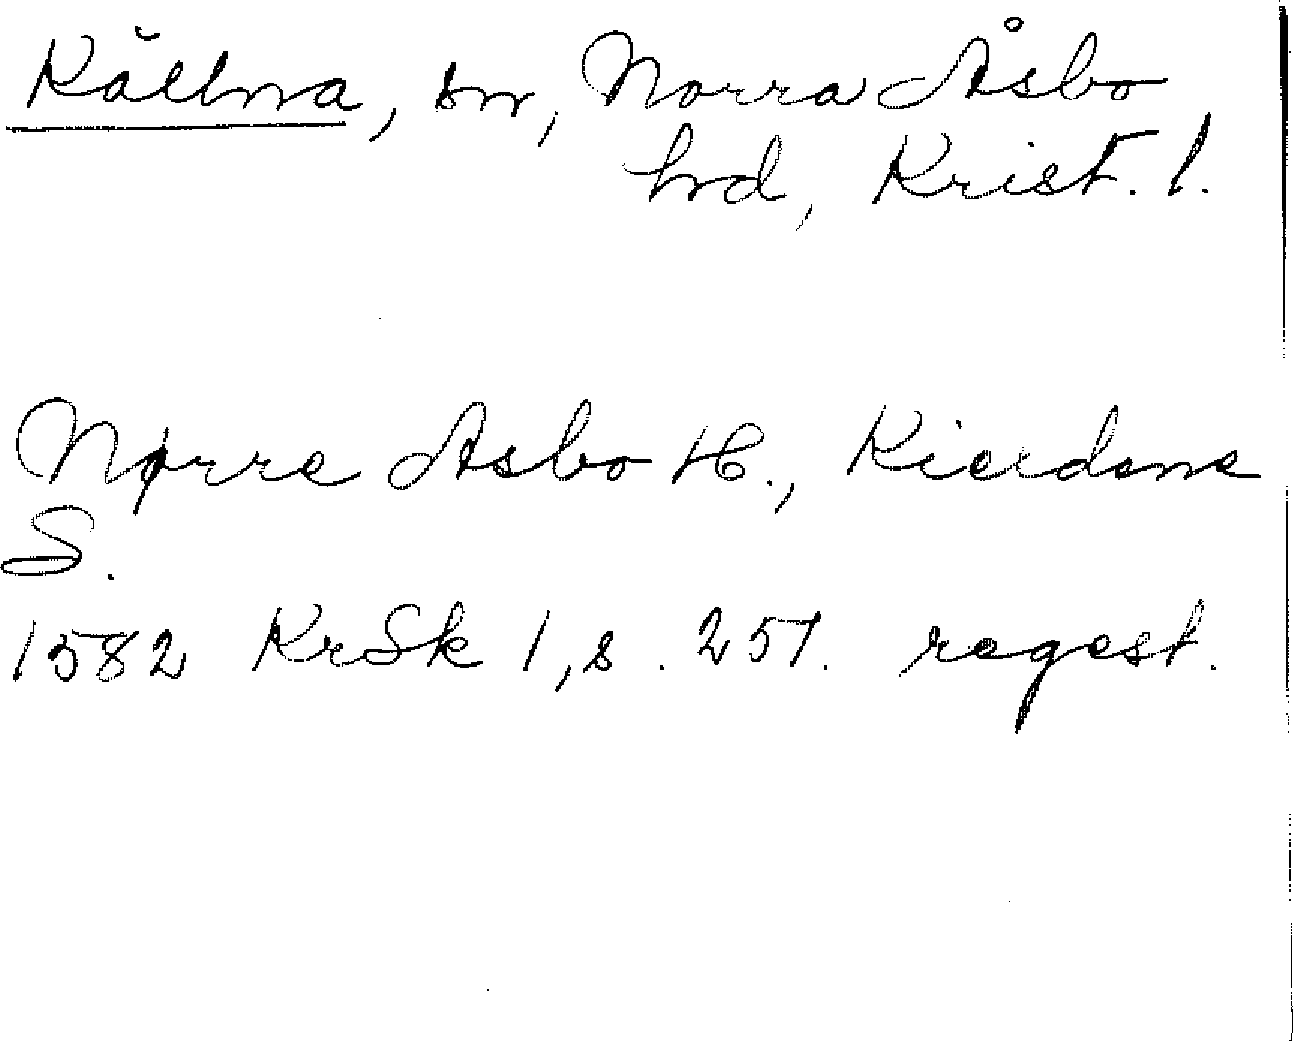 Källna, sn, Norra Åsbo
hrd, Krist. l.
Nørre Asbo H.,
S.
1582 KrSk 1, s. 251. regest.